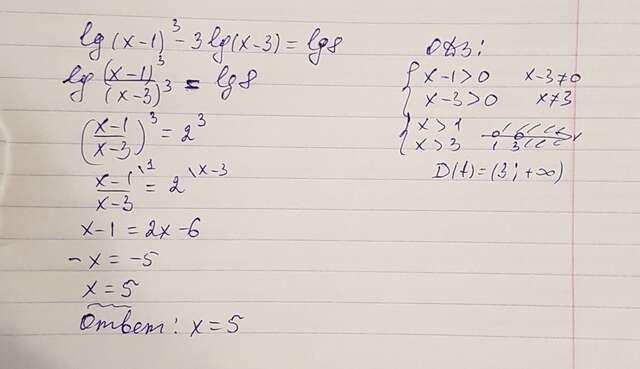 lg(x-1)³-3lg(x-3)=lg8
lg (x-1)³/(x-3)³ = lg8
((x-1)/(x-3))³=2³
(x-1)/(x-3) \¹ = 2 \ˣ⁻³
x-1=2x-6
-x=-5
x=5
Ответ: x=5
ОДЗ:
{ x-1>0 x-3≠0
x-3>0 x≠3
{ x>1
x>3
1 3 x
D(f)=(3;+∞)